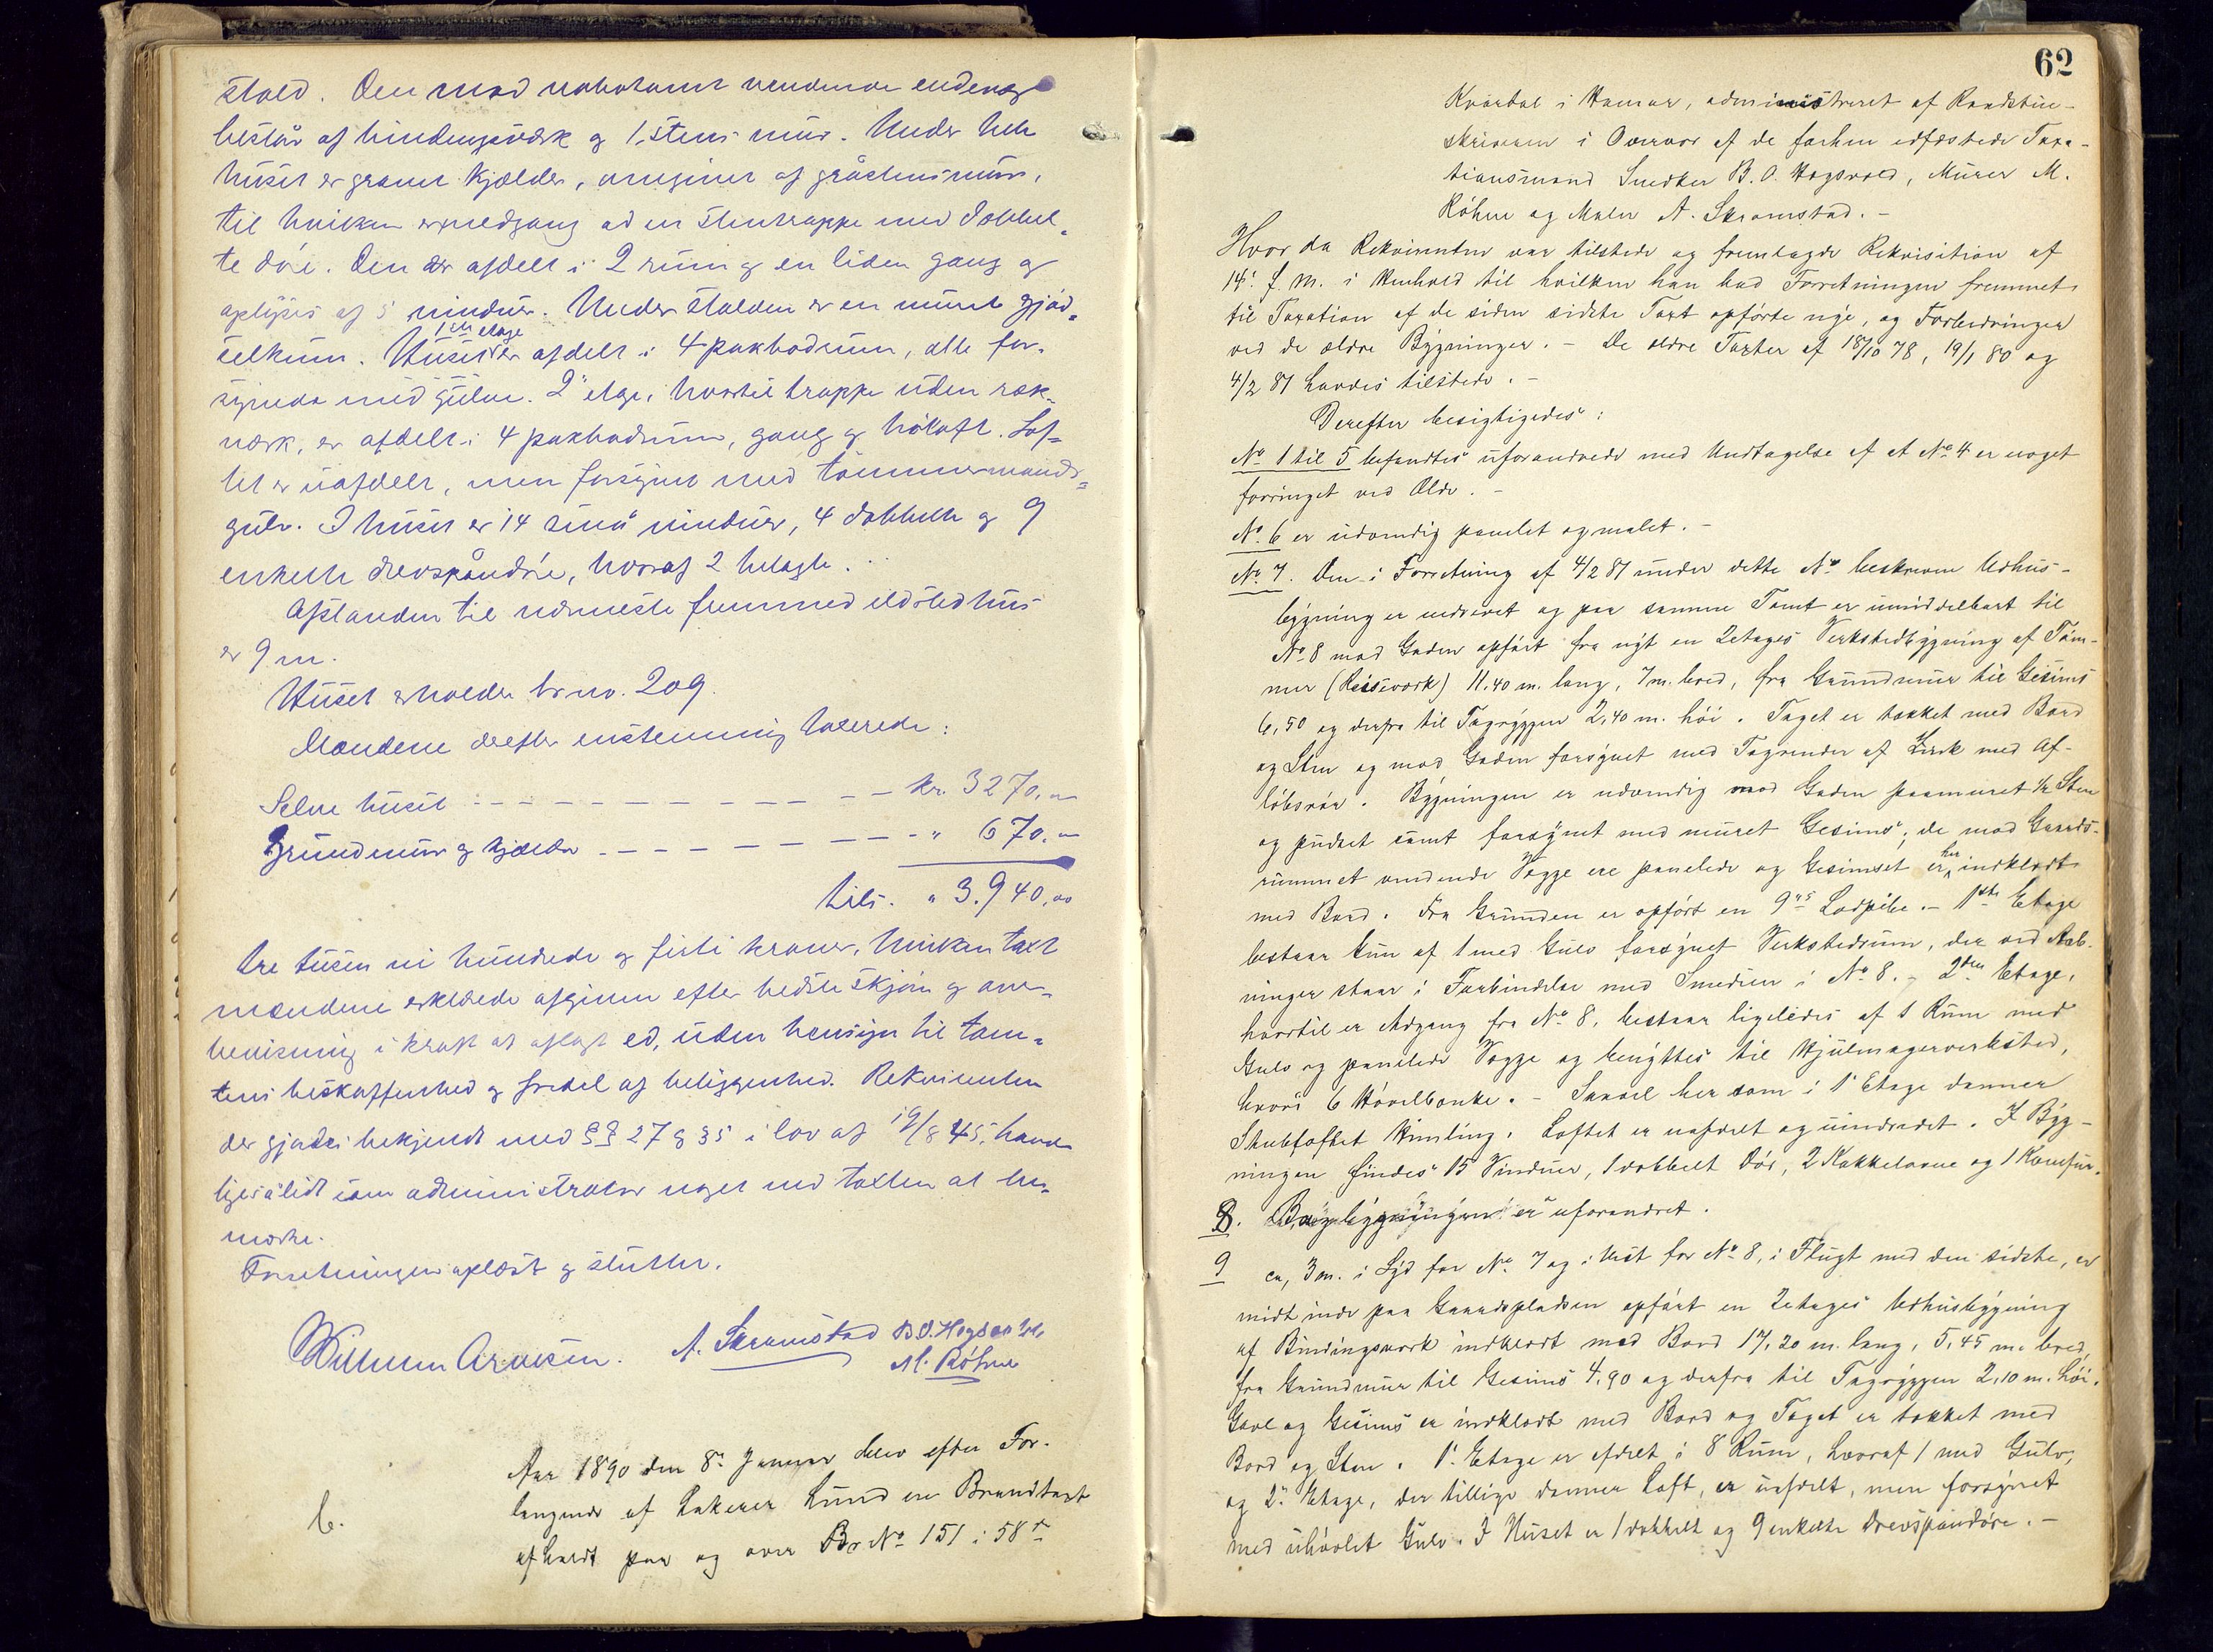 stald. Den mod nabotomt vendende endevæg
består af bindingsverk og 1. stens mur. Under hele
huset er gravet kjælder, omgivet af gråstensmur,
til hvilken er nedgang ad en stentrappe med dobbel-
te døre. Den er afdelt i 2 rum og en liden gang og
oplyses af 5 vinduer. Under stalden er en muret gjød-
selkum. Huset
1ste etage
er afdelt i 4 pakbodrum, alle for-
synede med gulve. 2' etage, hvortil trappe uden ræk-
verk, er afdelt i 4 pakbodrum, gang og høloft. Lof-
tet er uafdelt, men forsynet med tømmermands-
gulv. I huset er 14 små vinduer, 4 dobbelte og 9
enkelte drevspåndøre, hvoraf 2 belagte.
Afstanden til nærmeste fremmed ildsted hus
er 9 m.
Huset erholder br. no. 209.
Mændene derefter enstemmig taxerede:
Selve huset - - - - kr. 3270,00
Grundmur og kjælder - - - - " 670,00
tils. " 3.940,00
tre tusen ni hundrede og firti kroner, hvilken taxt
mændene erklærede afgiven efter bedste skjøn og over-
bevisning i kraft af aflagt ed, uden hensyn til tom-
tens beskaffenhed og fordel af beliggenhed. Rekvirenten
der gjordes bekjendt med §§ 27 og 35 i lov af 19/8 45, havde
ligesålidt som administrator noget ved taxten at be-
mærke.
Forretningen oplæst og sluttet.
Wilhelm Arnesen. A. Skramstad B.O. Hogsvold
M. Röhne
Aar 1890 den 8de Januar blev efter For-
langende af Lakerer Lund en Brandtaxt
6.
afholdt paa og over Br No 151 i 58de
62
Kvartal i Hamar, administreret af Raadstue-
skriveren i Overvær af de forhen edfæstede Taxa-
tionsmænd Snedker B. O. Hogsvold, Murer M.
Röhne og Maler A. Skramstad. -
Hvor da Rekvirenten var tilstede og fremlagde Rekvisition af
14' f. M. i Henhold til hvilken han bad Forretningen fremmet
til Taxation af de siden sidste Taxt opførte nye, og Forbedringer
ved de ældre Bygninger. - De ældre Taxter af 18/10 78, 19/1 80 og
4/2 81 havdes tilstede. -
Derefter besigtigedes:
No 1 til 5 befandtes uforandrede med Undtagelse af at No 4 er noget
forringet ved Ælde. -
No 6 er udvendig panelet og malet. -
No 7. Den i Forretning af 4/2 81 under dette No beskrevne Udhus-
bygning er nedrevet og paa samme Tomt er umiddelbart til
No 8 mod Gaden opført fra nyt en 2etages Verkstedbygning af Tøm-
mer (Reisværk) 11.40 m. lang, 7 m. bred, fra Grundmur til Gesims
6,50 og derfra til Tagryggen 2,40 m. høi. Taget er tækket med Bord
og Sten og mod Gaden forsynet med Tagrender af Zink med Af-
løbsrør. Bygningen er udvendig mod Gaden paamuret ½ Sten
og pudset samt forsynet med muret Gesims; de mod Gaards-
rummet vendende Vægge ere panelede og Gesimset er
her
indklædt
med Bord. Fra Grunden er opført en 9" Lodpibe. - 1ste Etage
bestaar kun af 1 med Gulv forsynet Verkstedrum, der ved Aab-
ninger staar i Forbindelse med Smedien i No 8. - 2den Etage,
hvortil er Adgang fra No 8, bestaar ligeledes af 1 Rum med
Gulv og panelede Vægge og benyttes til Hjulmagerverksted,
hvori 6 Høvelbænke. - Saavel her som i 1' Etage danner
Stubloftet Himling. Loftet er uafdelt og uindredet. I Byg-
ningen findes 15 Vinduer, 1 dobbelt Dør, 2 Kakkelovne og 1 Komfur.
8. Bagbygningen er uforandret.
9 ca, 3 m. i Syd for No 7 og i Vest for No 8, i Flugt med den sidste, er
midt inde paa Gaardspladsen opført en 2etages Udhusbygning
af Bindingsværk indklædt med Bord 17,20 m. lang, 5,45 m. bred,
fra Grundmur til Gesims 4,90 og derfra til Tagryggen 2,10 m. høi.
Gavl og Gesims er indklædt med Bord og Taget er tækket med
Bord og Sten. 1' Etage er afdelt i 8 Rum, hvoraf 1 med Gulv,
og 2' Etage, der tillige danner Loft, er uafdelt, men forsynet
med uhøvlet Gulv. I Huset er 1 dobbelt og 9 enkelte Drevspandøre. -